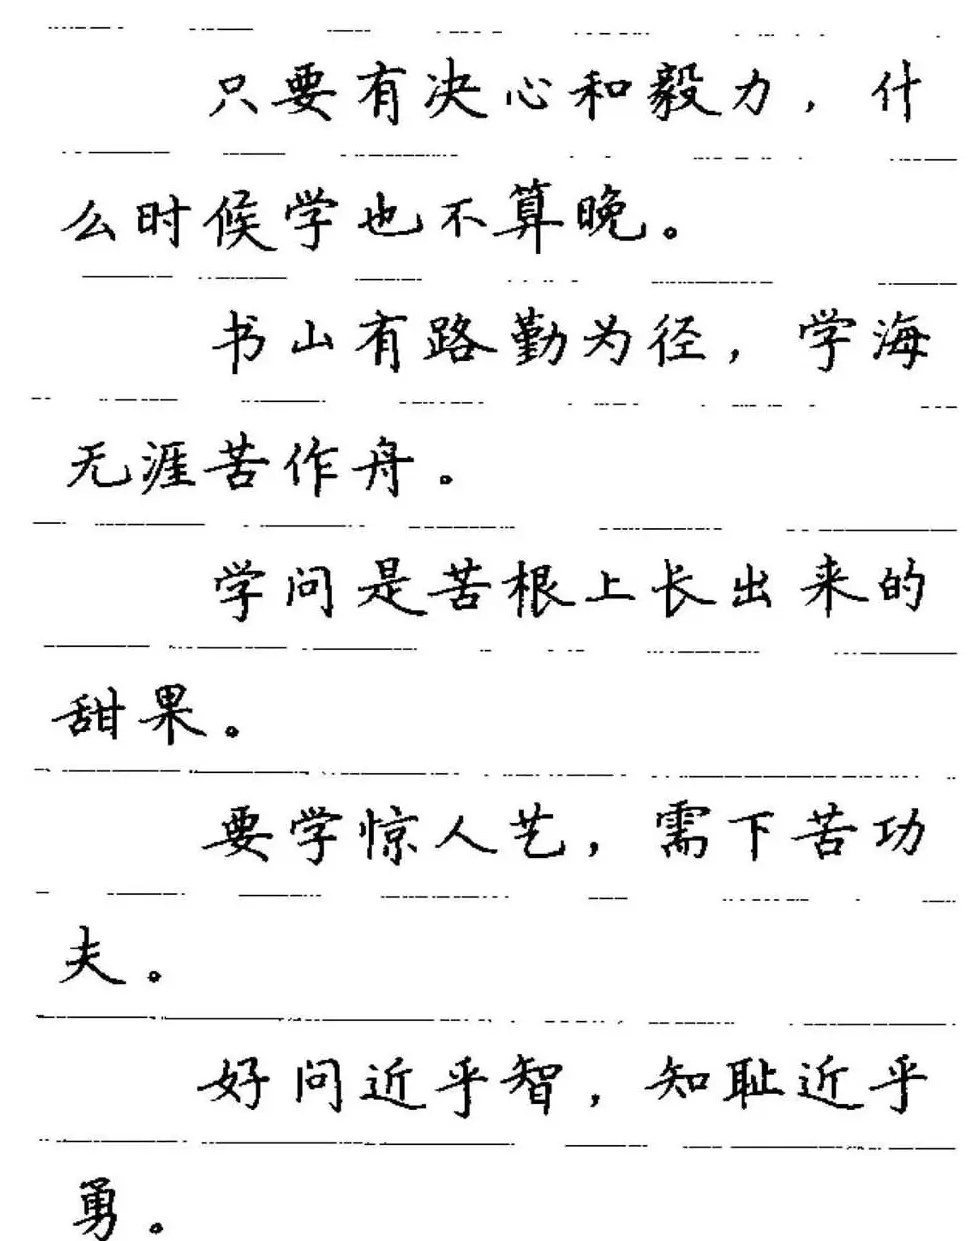 只要有决心和毅力，什
么时候学也不算晚。
书山有路勤为径，学海
无涯苦作舟。
学问是苦根上长出来的
甜果。
要学惊人艺，需下苦功
夫。
好问近乎智，知耻近乎
勇。